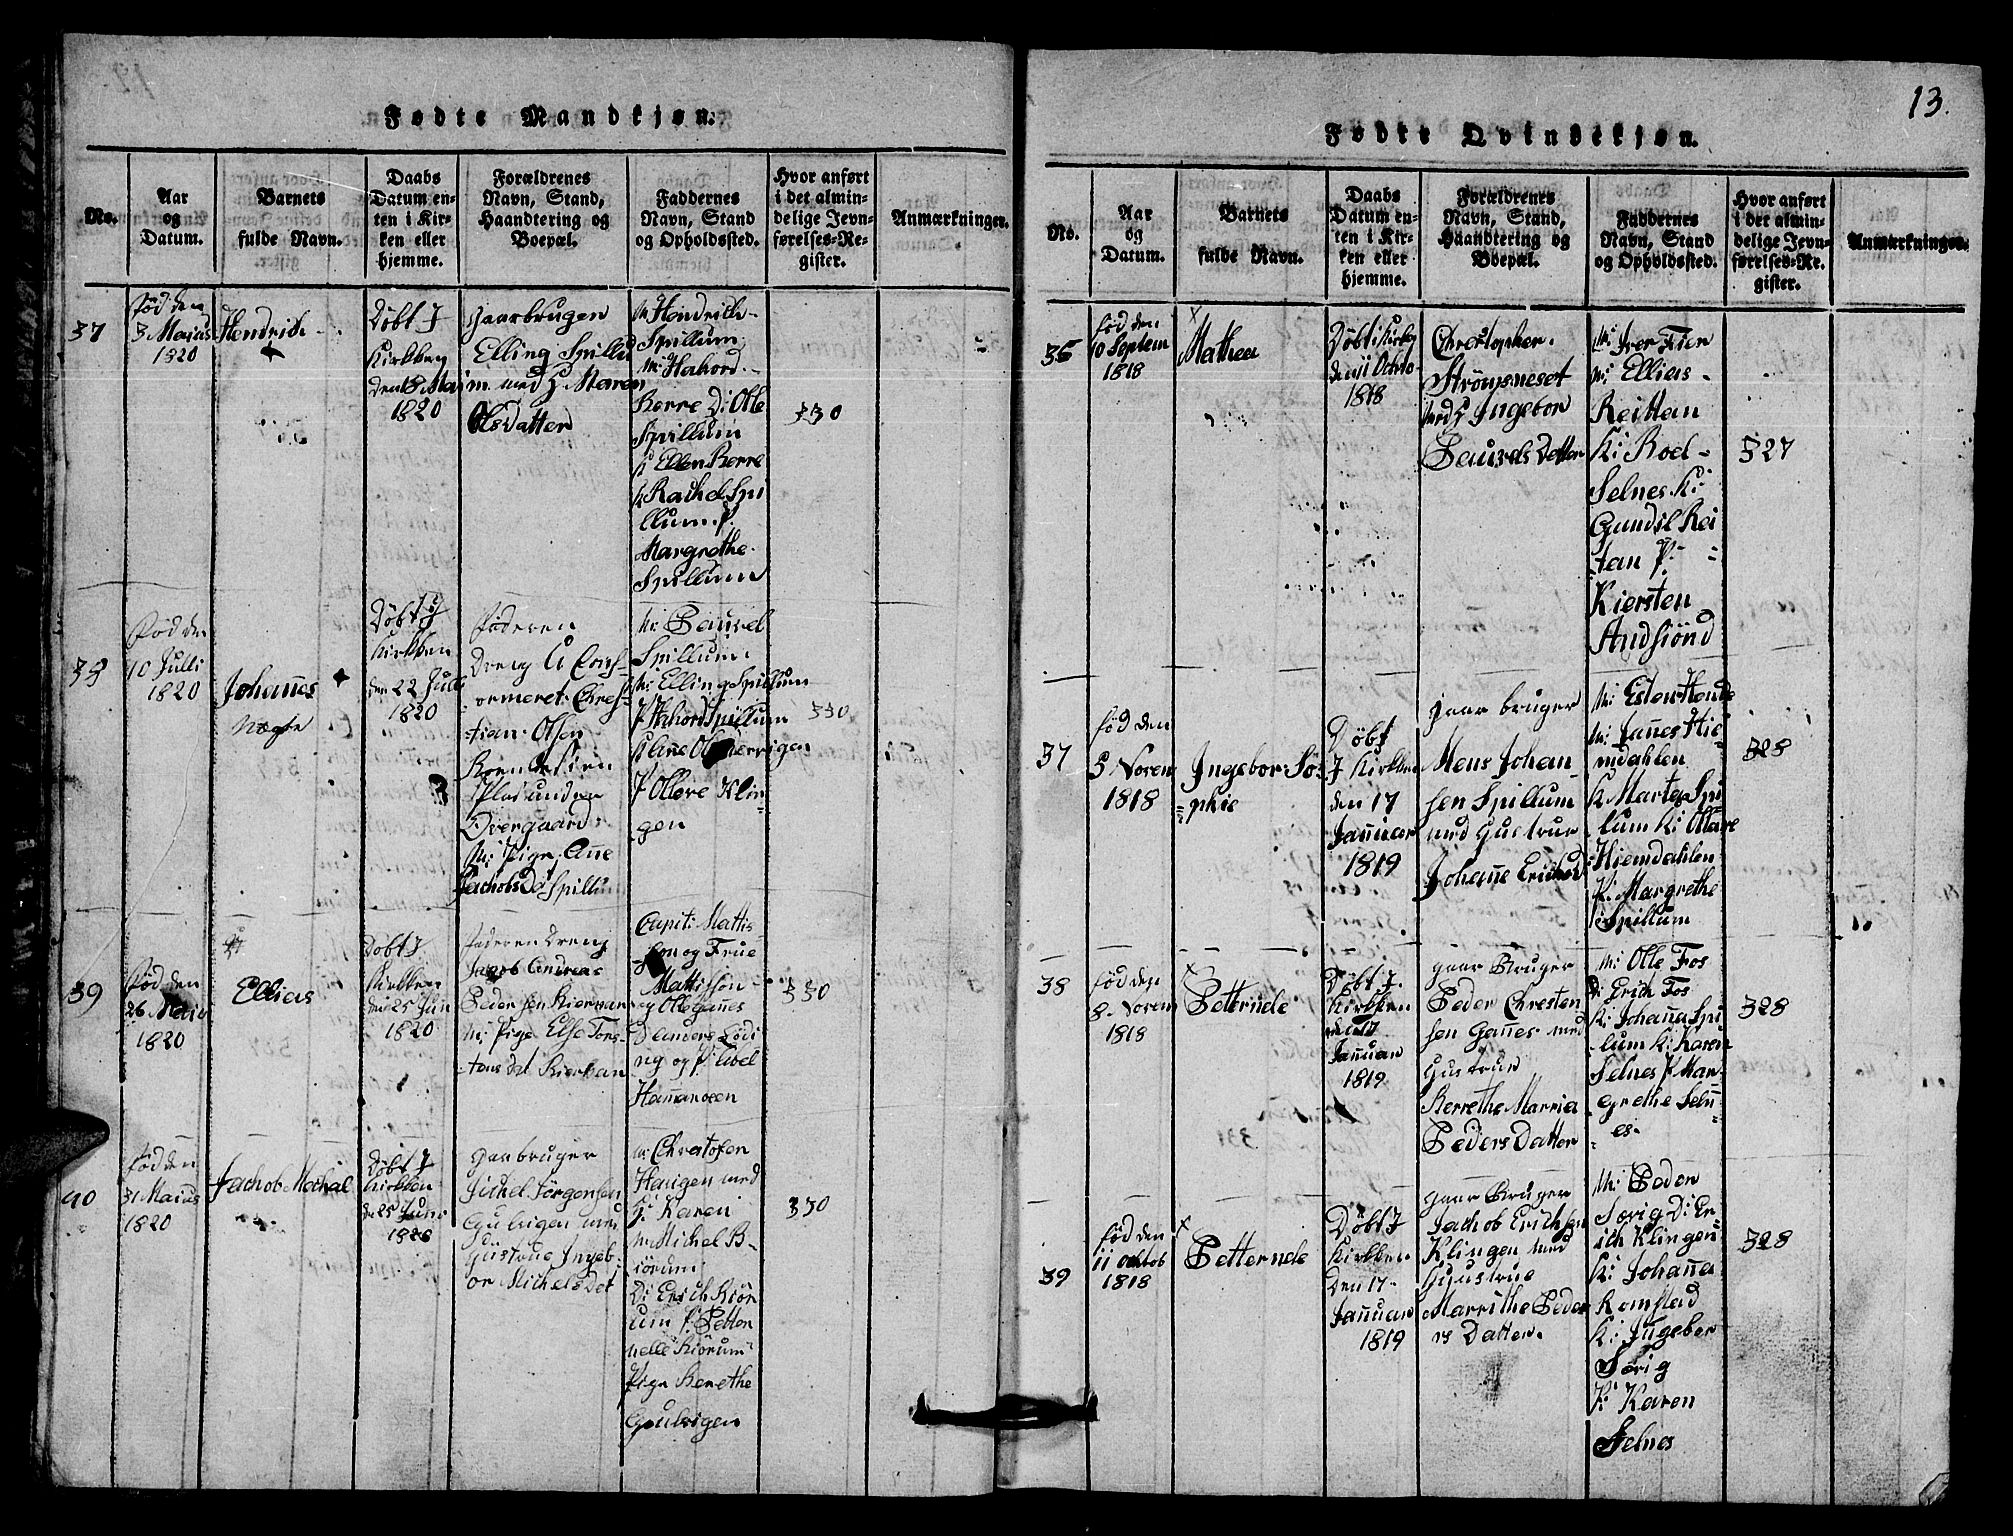 13.
Fødte Mandkjøn.
No.
Aar
og
Datum.
Barnets
fulde Navn.
Daabs
Datum en-
ten i Kir-
ken eller
hjemme.
Forældrenes
Navn, Stand,
Haandtering og
Boepæl.
Faddernes
Navn, Stand
og Opholdssted.
Hvor anført
i det almin-
delige Jevn-
førelses-Re-
gister.
Anmærkninger.
37
Fød den
3 Maius
1820
Hendrich
Døbt J
Kirkken
1820
gaarbrugen
Elling Spillu
m med H Maren
Olsdatter
M: Hendrich
Spillum
M: Hahord
Borre D: Olle
Spillum
K Ellen Borre
K Rachel Spi
llum. P.
Margrethe
Spillum
330
38
Fød den
10 Julli
1820
Johannes
Døbt J
Kirkken
den 22 Julli
1820
Føderen
Dreng U Conf-
ormeret Chres-
tian Olsen
Plas under
Overgaard
M: Pige Anne
Jachobs D Spillum
M: Paurel
Spillum
M: Elling Spillum
P Hahord Spillum
P Ollove Klin-
gen
330
39
Fød den
26 Maii
1820
Ellias
Døbt J
Kirkken
den 25 Juni
1820
Faderen Dreng
Jacob Andreas
Peder sen
M: Pige Else Tors-
tens dat
Capit: Mattis-
son og Frue
Mattisson
og Olle gannes
Hannanoeen
330
40
Fød den
31 Maius
1820
Jachob Mechal
Døbt J
Kirkken
de 25 Juni
1820
Gaarbruger
Michel Jørgensen
Gulvigen med
Gustrue Ingeb-
or Michels Det
M: Chrestofen
Haugen med
K: Karen
M: Michel B-
iørum
D: Erich Kiør
um P: Petter
nelle Kiørum
Pige Berethe
Gulvigen
330
Fødte Qvindekjøn.
No.
Aar
og
Datum.
Barnets
fulde Navn.
Daabs
Datum en-
ten i Kir-
ken eller
hjemme.
Forældrenes
Navn, Stand,
Haandtering og
Boepæl.
Faddernes
Navn, Stand
og Opholdssted.
Hvor anført
i det almin-
delige Jevn-
førelses-Re-
gister.
Anmærkninger.
36
Fød den
10 Septem
1818
Mathea
Døbt i Kirke
den 11 Octro
1818
Chrestopher
Strømsneset
med H Ingebor
Paurels Detter
M: Iver Fier
M: Ellias
Reittan
K: Roel
Selnes K:
Gundil Rei
tan P:
Kiersten
Andsiönd
327
37
Fød den
5 Novem
1818
Ingebor Sö-
phie
Døbt
J Kirkken
den 17
Januar
1819
gaar bruger
Mens Johan-
sen Spillum
med Gustrue
Johanne Erichsd
M: Esten Hende
M: Janes Hie-
mdahlen
K Marta Spi
lum K: Ollave
Hiemdahlen
K: Margrethe
Spillum
328
38
Fød den
8 Novem
1818
Petternele
Døbt J
Kirkken
den 17
Januar
1819
gaar Bruger
Peder Chresten
sen Gannes med
Gustrue
Berrethe Marria
Peders Datter
M: Olle Fos
D: Erich Fos
K: Johanna Spi
lum K: Karen
Selnes P Mar-
grethe Seln-
es.
328
39
Fød den
11 Octob
1818
Petternele
Døbt J
Kirkken
Den 17
Januar
1819
gaar Bruger
Jachob Erichsen
Klingen med
Gustrue
Marrithe Peder
rs Datter.
M: Peder
Sørig D: Er-
ich Klingen
K: Johanna
Romstad
K: Ingebor
Sørig
K: Karen
Selnes
328